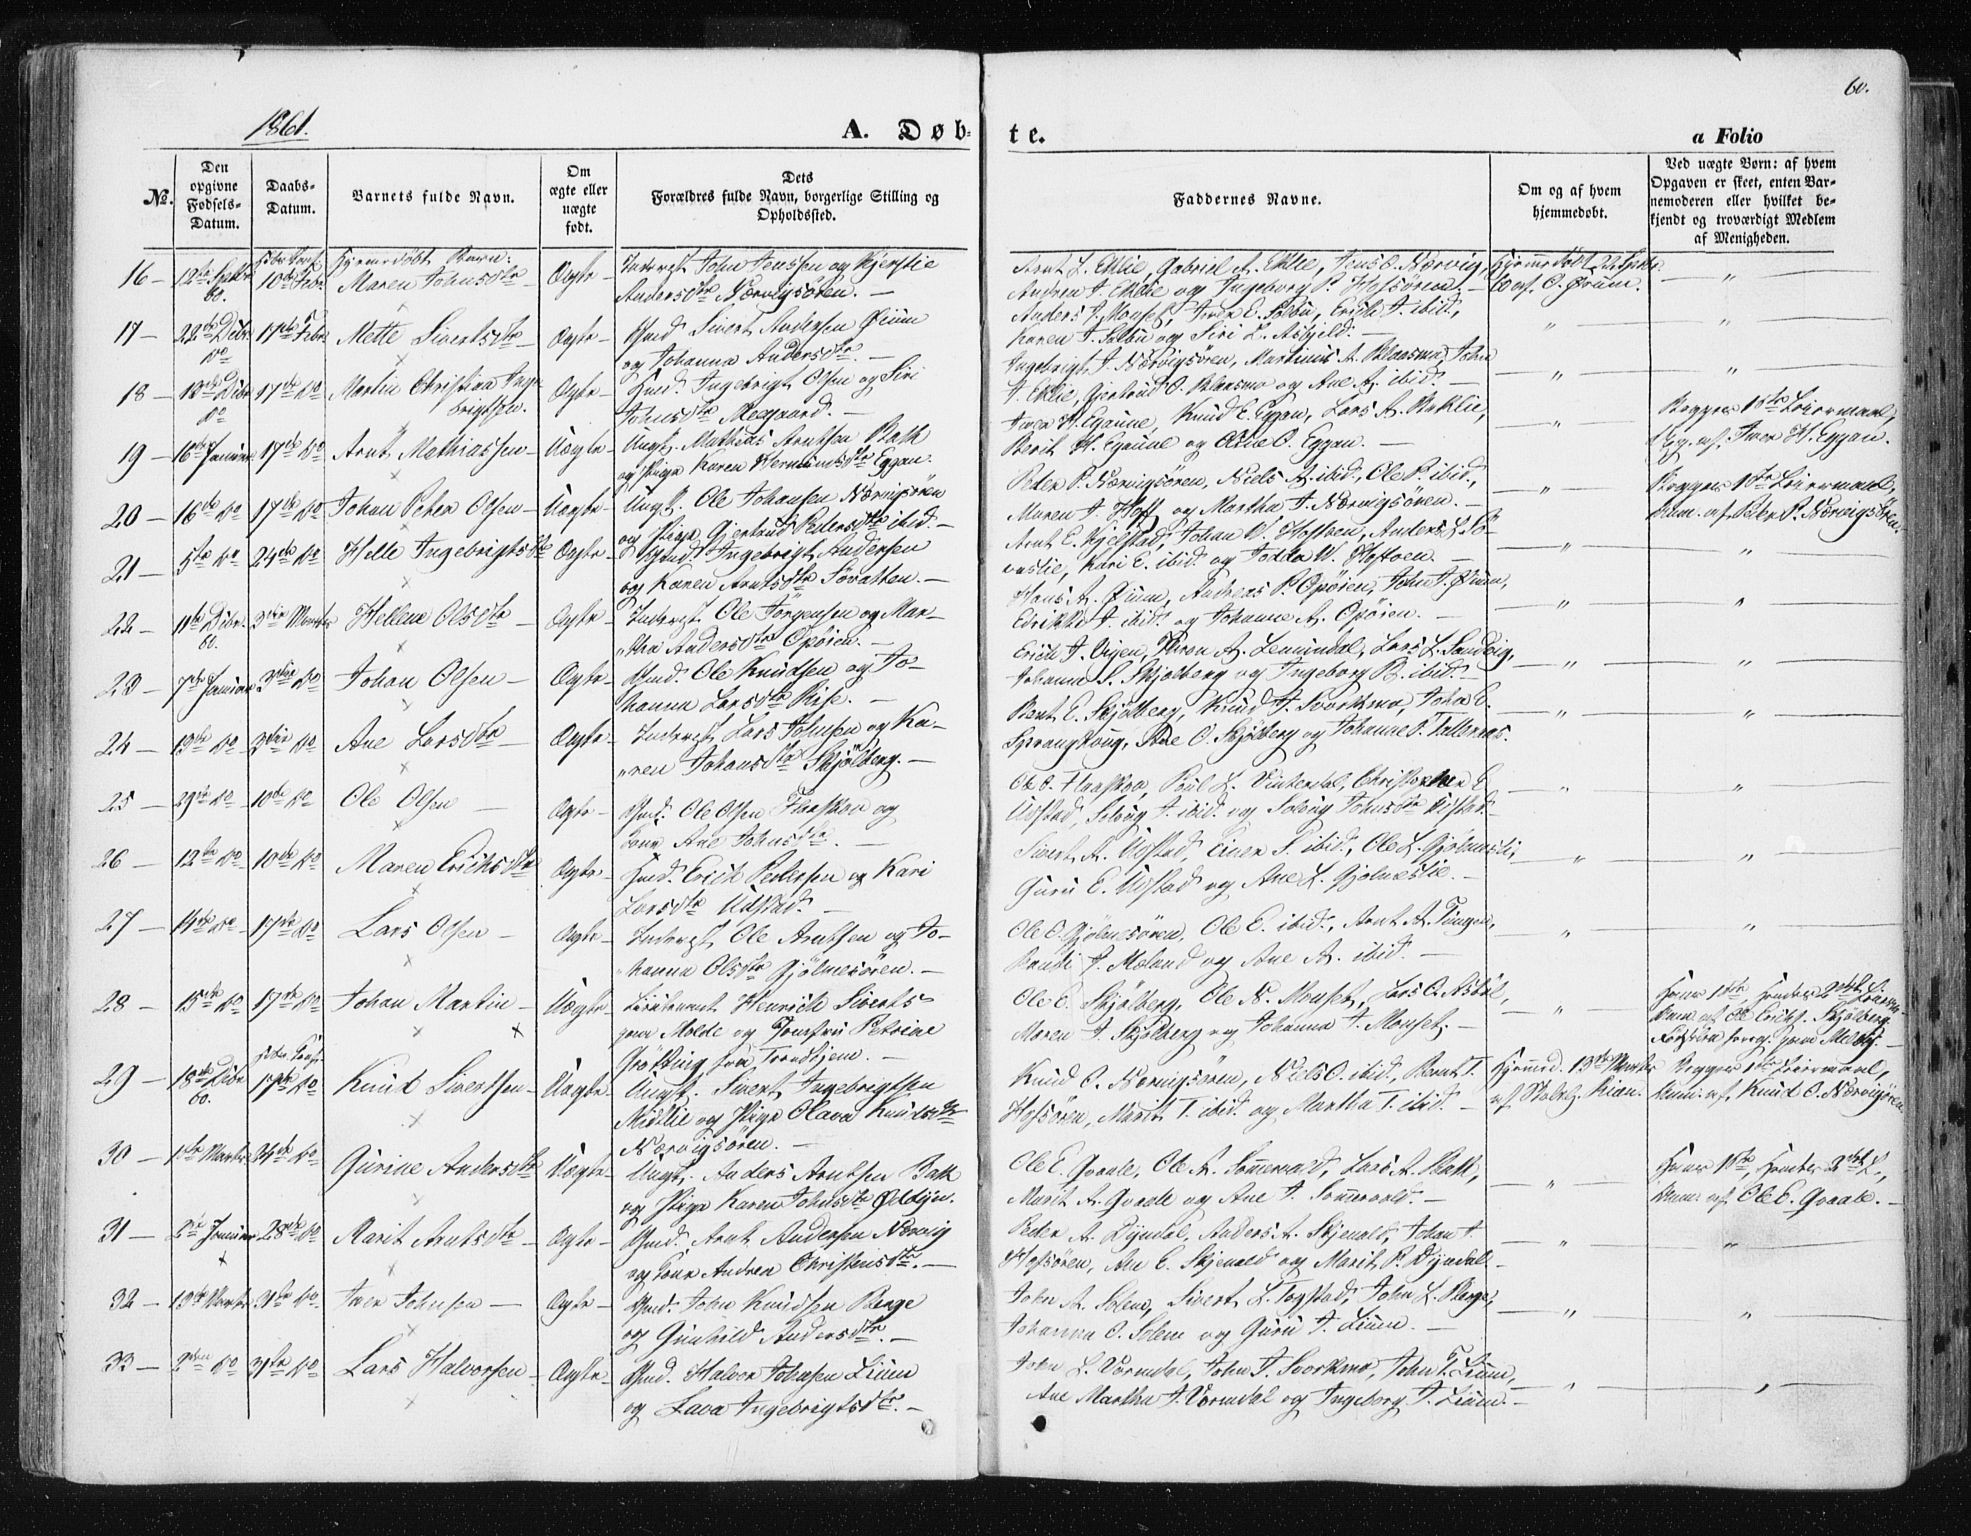 60.
1861.
A. Døb-
te.
a Folio
No.
Den opgivne Fødsels-Datum.
Daabs-Datum.
Barnets fulde Navn.
Om ægte eller uægte født.
Dets Forældres fulde Navn, borgerlige Stilling og Opholdssted.
Faddernes Navne.
Om og af hvem hjemmedøbt.
Ved uægte Børn: af hvem Opgaven er skeet, enten Barnemoderen eller hvilket bekjendt og troværdigt Medlem af Menigheden.
Hjemmedøbt Barn:
16 — 12te Septbr 60. 10de Febr Maren Johnsdtr Ægte Inderst John Jenssen og Kjerstie
Andersdtr Nærvigsøren. —
Arnt L. Eklie, Gabriel A. Eklie, Jens O. Nærvig,
Andrea J. Eklie og Ingeborg P. Hofsøren. — 60 af O. Ørum.
17 — 22de Dcbr do 17de Febr Mette Sivertsdtr Ægte Gmd. Sivert Andersen Øium
og Johanna Andersdtr. —
Karen J. Solbu og Siri L. Asbjeld. —
18 — 18de Dcbr do 17de do Martin Christian Ingebrigtsen Ægte Hmd. Ingebrigt Olsen og Siri
Johnsdtr
J. Eklie, Gjertrud O. Blaasmo og Ane A. ibid. —
19 — 16de Januar 17de do Arnt Mathiassen Uægte Ungk. Mathias Arntsen Bakk
og Pige Karen Hermundsdtr Eggan.
Iver H. Egaune, Knud E. Eggan, Lars A. Baklie,
Berit H. Egaune og Ane O. Eggan. —
Begges 1ste Leiermaal,
Opg. af Iver H. Eggan.
20 — 16de do 17de do Johan Peter Olsen Uægte Ungk. Ole Johansen Nærvigsøren
og Pige Gjertrud Pedersdtr ibid. —
Peder P. Nærvigsøren, Niels A. ibid., Ole P. ibid.,
Maren J. Hoff og Martha J. Nærvigsøren. —
Begges 1ste Leiermaal,
Anm. af Peder P. Nærvigsøren.
21 — 5te do 24de do Helle Ingebrigtsdtr Ægte Gmd. Ingebrigt Andersen
og Karen Arntsdtr Søvatten. —
22 — 11te Dcbr. 60. 3die Marts Hellena Olsdtr Ægte Inderst Ole Jørgensen og Mar-
tha Andersdtr Opøien. —
Hans A. Øium, Andreas P. Opøien, John J. Øium,
J. ibid. og Johanna A. Opøien.
23 — 7de Januar 3die do Johan Olsen Ægte Gmd. Ole Knudsen og Jo-
hanna Larsdtr Rise. —
Johanna S. Skjølberg og Ingeborg B. ibid. —
24 — 13de do 3die do Ane Larsdtr Ægte Inderst Lars Johnsen og Ka-
ren Johansdtr Skjølberg. —
Bent E. Skjølberg, Knud J. Svorkmo, John E.
Ane O. Skjølberg og Johanne P.
25 — 29de do 10de do Ole Olsen Ægte Gmd. Ole Olsen Flaaskoa og
Kone Ane Johnsdtr. —
Ole O. Flaaskoa, Poul L. Vinterdal, Christopher E.
Udstad, Solvig J. ibid. og Solvig Johnsdtr Udstad.
26 — 12te do 10de do Maren Erichsdtr Ægte Hmd. Erich Pedersen og Kari
Larsdtr Udstad. —
Sivert A. Udstad, Einer S. ibid., Ole L. Gjølmeslie,
Guru E. Udstad og Ane L. Gjølmeslie. —
27 — 14de do 17de do Lars Olsen Ægte Inderst Ole Arntsen og Jo-
hanna Olsdtr Gjølmesøren. —
Ole O. Gjølmesøren, Ole E. ibid., Arnt A. Tingen,
Randi J. Moland og Ane A. ibid. —
28 — 15de do 17de do Johan Martin Uægte Lieutenant Henrich Siverts
paa Molde og Jomfru Petrine
fra Trondhjem. —
Ole E. Skjølberg, Ole N. Monset, Lars O. Asbøl,
Maren J. Skjølberg og Johanna J. Monset. —
Hans 1ste, Hendes 2det Leierm.
Anm. af Ole Erichs. Skjølberg
29 — 18de Dcbr 60. 17de do Knud Sivertsen Uægte Ungk. Sivert Ingebrigtsen
Midtlie og Pige Olava Knudsdtr
Nærvigsøren. —
Knud O. Nærvigsøren, Niels O. ibid., Bent T.
Hofsøren, Marit T. ibid. og Martha T. ibid. —
Hjemmed. 13de Marts
Begges 1ste Leiermaal,
Anm. af Knud O. Nærvigsøren
30 — 1ste Marts 24de do Gurine Andersdtr Uægte Ungk. Anders Arntsen Bakk
og Pige Karen Johnsdtr
Ole E. Gvaale, Ole A. Sommervold, Lars A. Bakk,
Marit A. Gvaale og Ane J. Sommervold. —
Hans 1ste, Hendes 2det L.,
Anm. af Ole E. Gvaale. —
31 — 2de Januar 28de do Marit Arntsdtr Ægte Gmd. Arnt Andersen Nervig
og Kone Andrea Christensdtr. —
Peder A. Dyndal, Anders A. Skjenald, Johan J.
Hofsøren, Ane E. Skjenald og Marit P. Dyndal.
32 — 13de Marts 31te do Iver Johnsen Ægte Gmd. John Knudsen Berge
og Gunhild Andersdtr. —
John A. Solem, Sivert L. Togstad, John L. Berge,
Johanna O. Solem og Guru J. Lium. —
33 — 2den do 31te do Lars Halvorsen Ægte Gmd. Halvor Johnsen Lium
og Lava Ingebrigtsdtr. —
John L. Vormdal, John J. Svorkmo, John T. Lium,
Ane Martha J. Vormdal og Ingeborg J. Lium. —